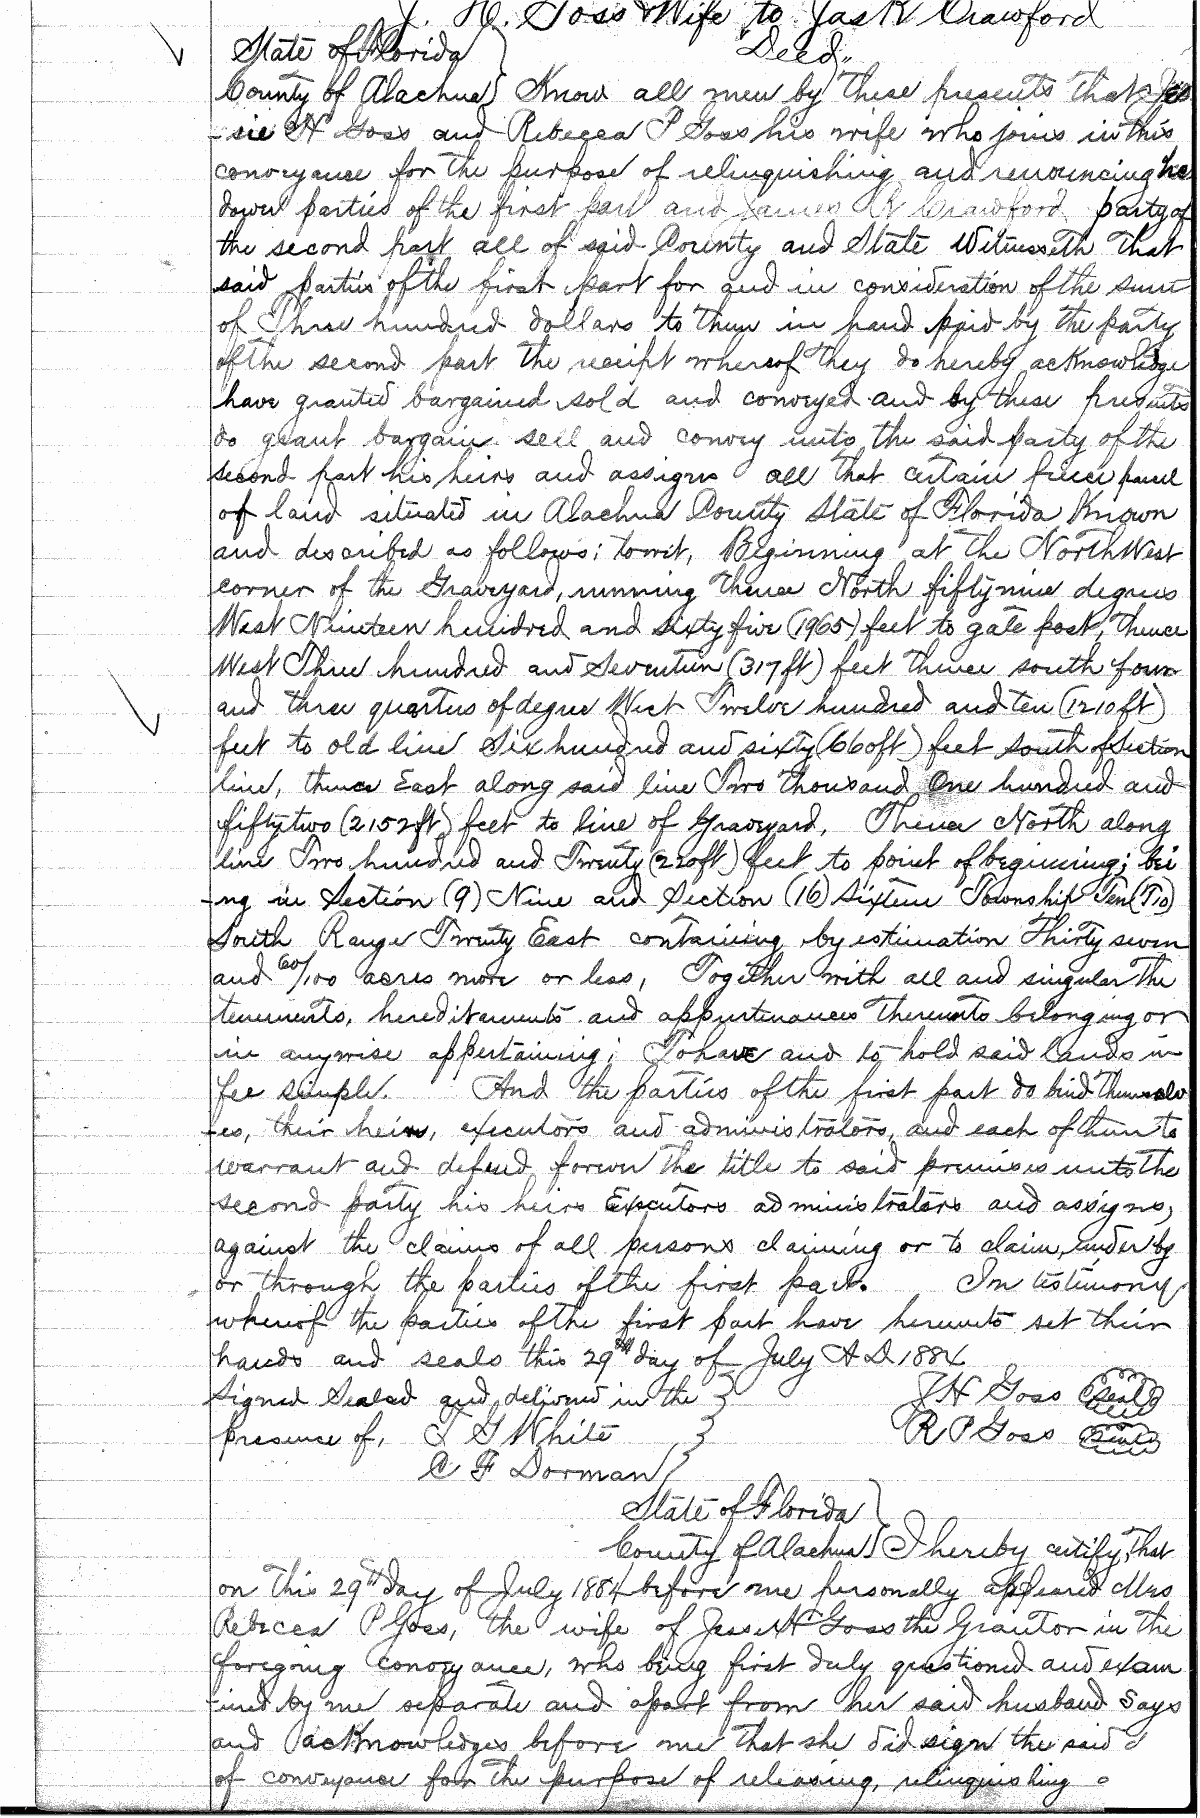 J. H. Goss & Wife to Jas R Crawford
State of Florida } Deed,,
County of Alachua } Know all men by these presents that Jes
-sie H Goss and Rebecca P Goss his wife who joins in this
conveyance for the purpose of relinquishing and renouncing her
dower parties of the first part and James R Crawford party of
the second part all of said County and State Witnesseth that
said parties of the first part for and in consideration of the sum
of Three hundred dollars to them in hand paid by the party
of the second part the receipt whereof they do hereby acknowledge
have granted bargained sold and conveyed and by these presents
do grant bargain sell and convey unto the said party of the
second part his heirs and assigns all that certain piece parcel
of land situated in Alachua County State of Florida Known
and described as follows; towit, Beginning at the North West
corner of the Graveyard, running thence North fifty nine degrees
West Nineteen hundred and sixty five (1965) feet to gate post, thence
West Three hundred and Seventeen (317 ft) feet thence south four
and three quarters of degree West Twelve hundred and ten (1210 ft)
feet to old line Six hundred and sixty (660 ft) feet south of Section
line, thence East along said line Two thousand One hundred and
fifty two (2152 ft) feet to line of Graveyard, Thence North along
line Two hundred and Twenty (220 ft) feet to point of beginning; bei
-ng in Section (9) Nine and Section (16) Sixteen Township Ten (T10)
South Range Twenty East containing by estimation Thirty seven
and 60/100 acres more or less, Together with all and singular the
tenements, hereditaments and appurtenances thereunto belonging or
in anywise appertaining; To have and to hold said lands in
fee simple. And the parties of the first part do bind themselv
-es, their heirs, executors and administrators, and each of them to
warrant and defend forever the title to said premises unto the
second party his heirs Executors administrators and assigns,
against the claims of all persons claiming or to claim, under by
or through the parties of the first part. In testimony
whereof the parties of the first part have hereunto set their
hands and seals this 29th day of July A D 1884
Signed Sealed and delivered in the } J H Goss (Seal)
presence of, T G White } R P Goss (Seal)
C F Dorman }
State of Florida }
County of Alachua } I hereby certify, that
on this 29th day of July 1884 before me personally appeared Mrs
Rebecca P Goss, the wife of Jesse H Goss the Grantor in the
foregoing conveyance, who being first duly questioned and exam
-ined by me separate and apart from her said husband Says
and acknowledges before me that she did sign the said
of conveyance for the purpose of releasing, relinquishing